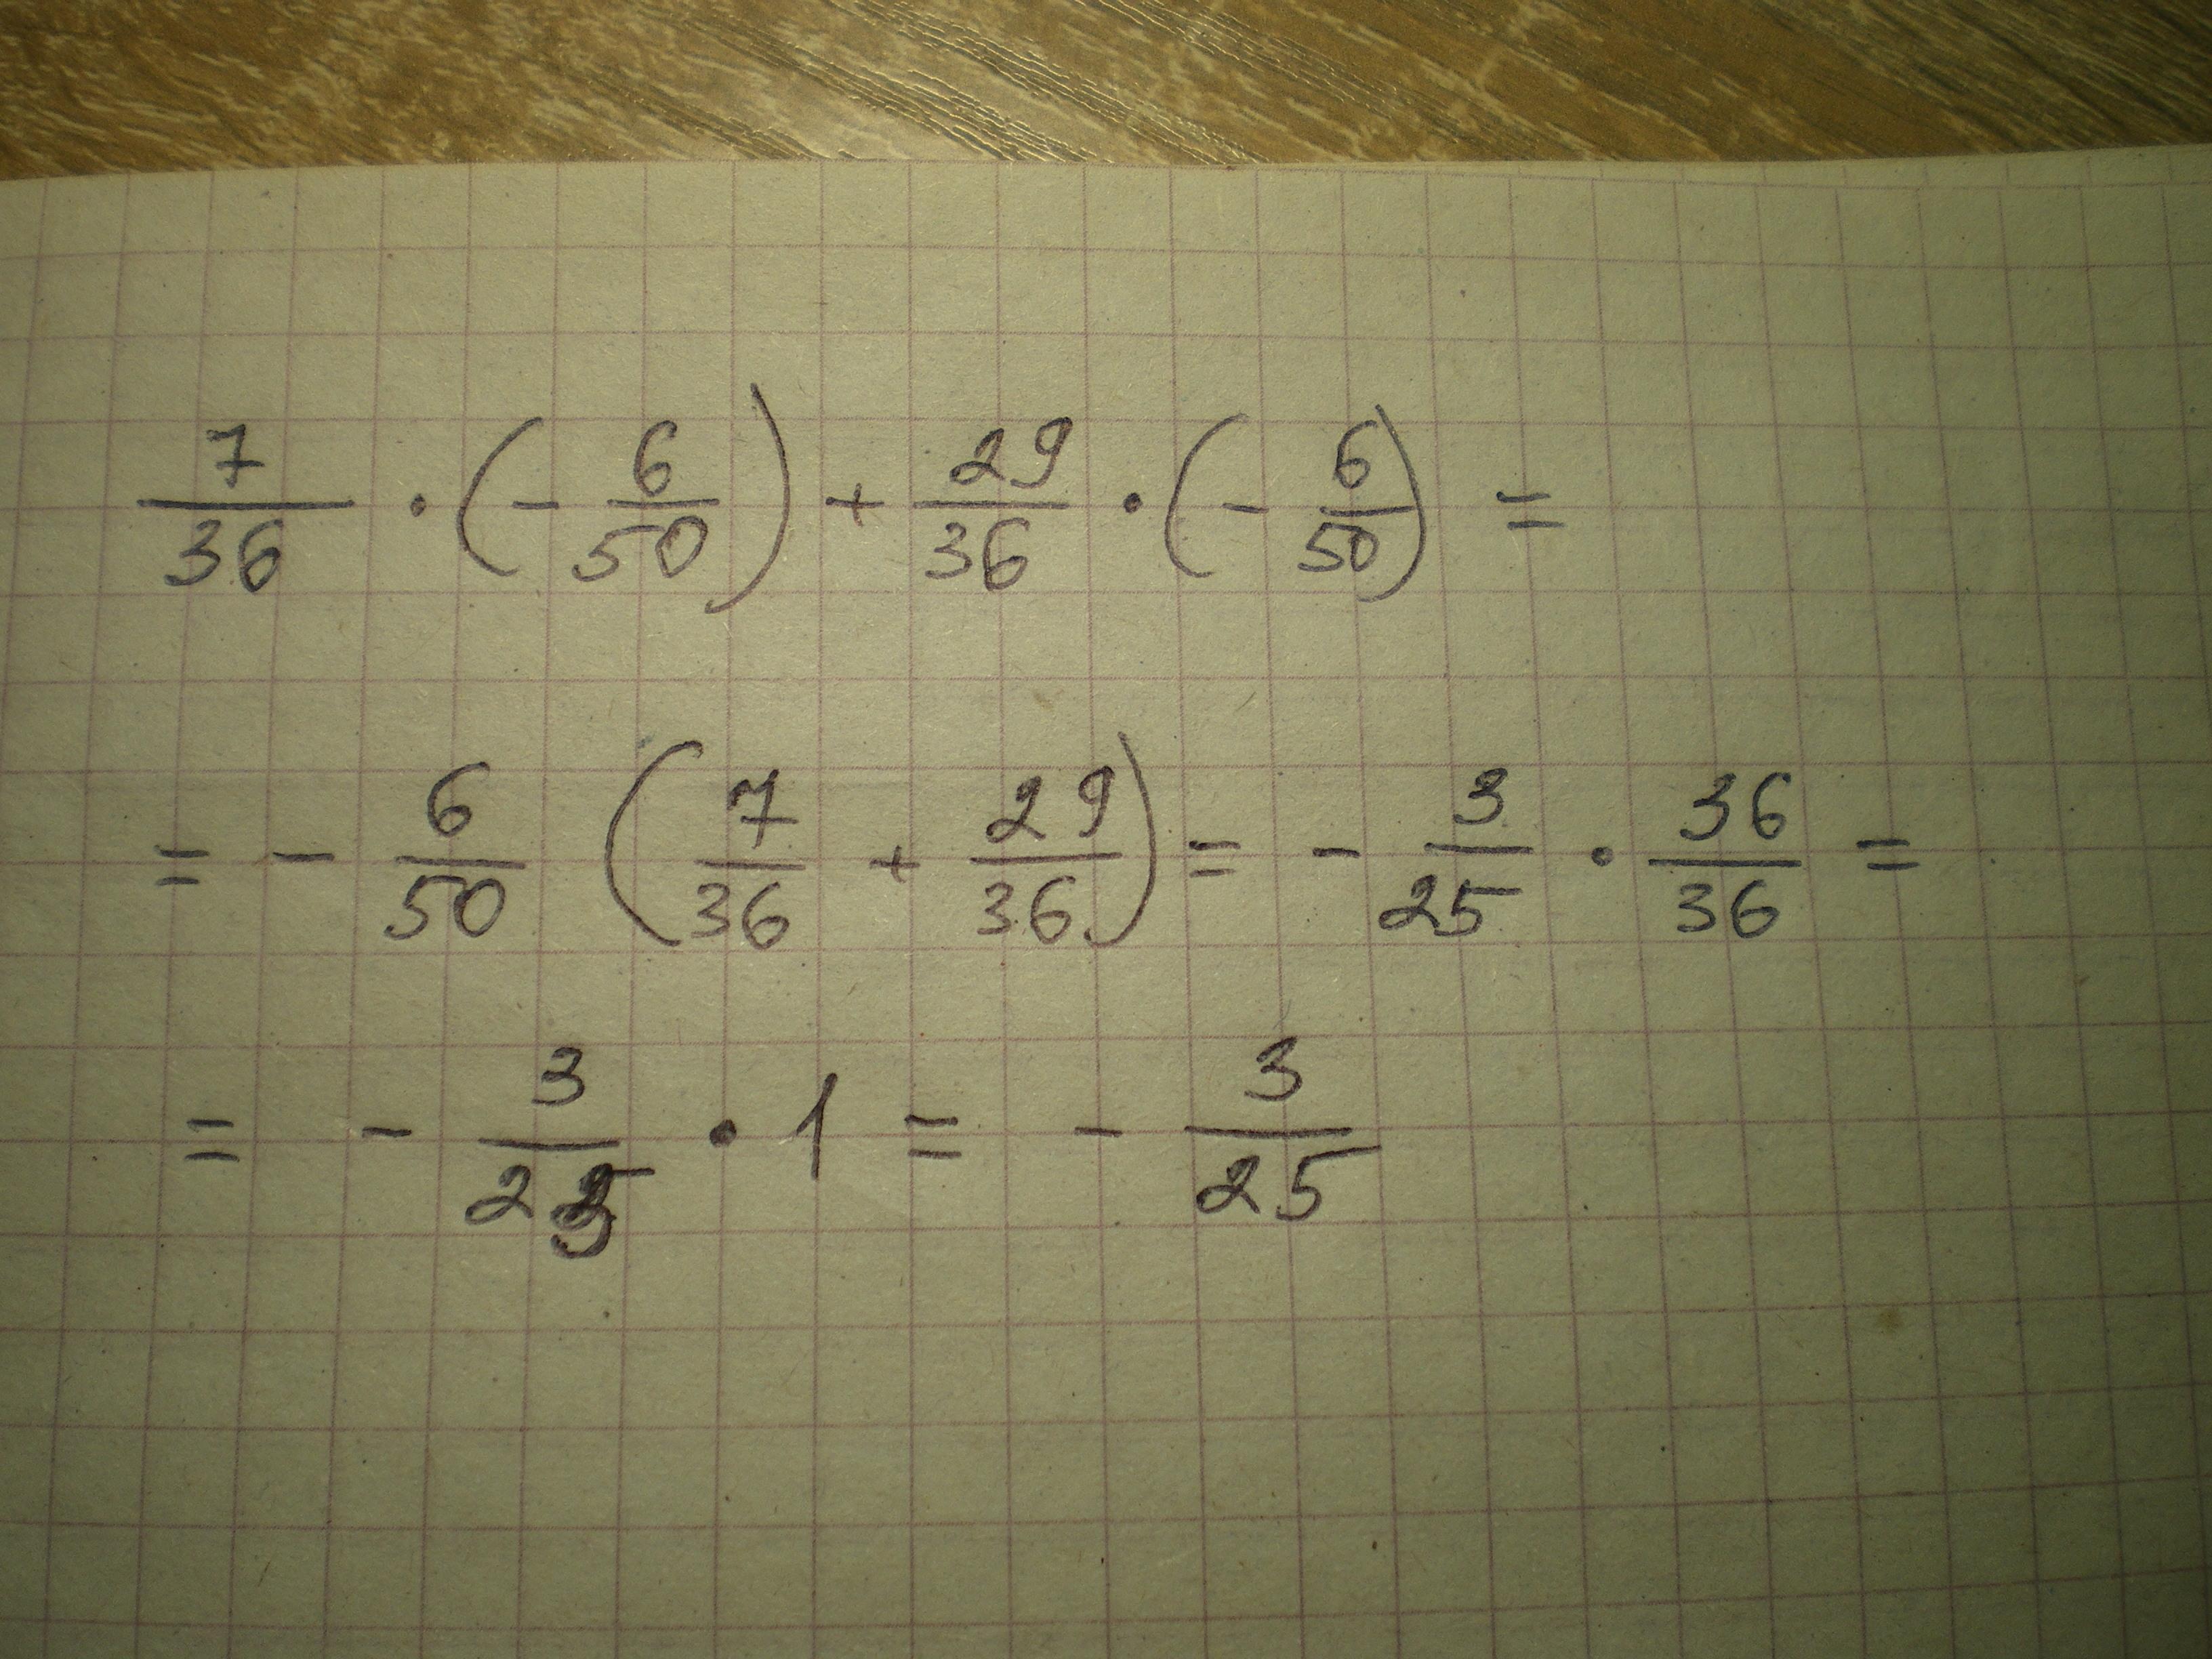 7/36 · (- 6/50) + 29/36 · (- 6/50) =
= - 6/50 (7/36 + 29/36) = - 3/25 · 36/36 =
= - 3/25 · 1 = - 3/25